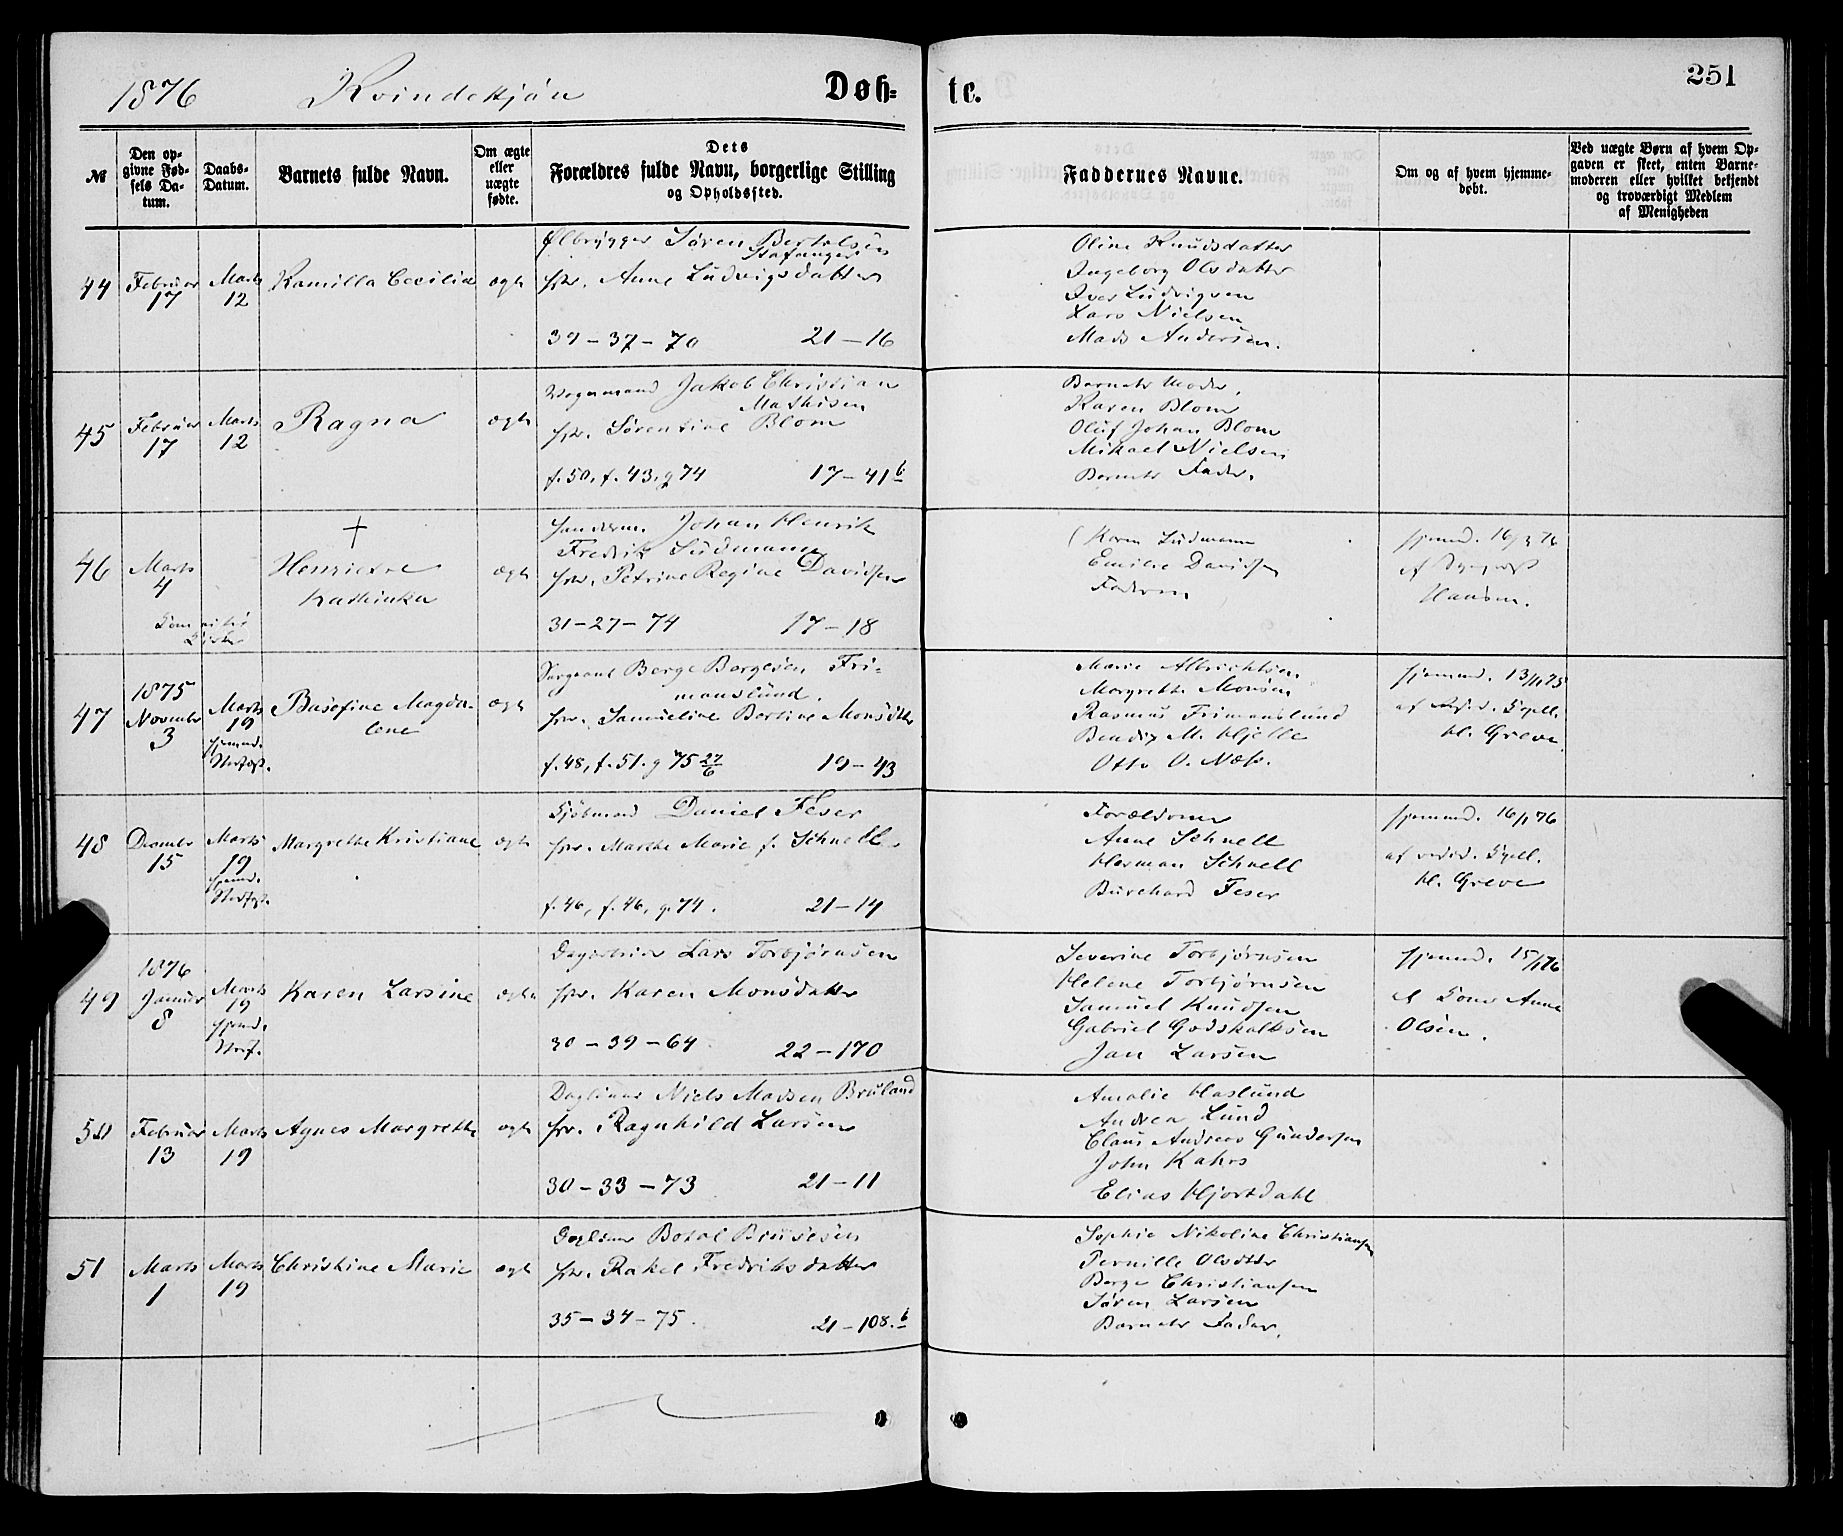 1876 Kvindekjön Døb=
te. 251
№
Den op-
givne Fød-
sels Da-
tum.
Daabs-
Datum.
Barnets fulde Navn.
Om ægte
eller
uægte
fødte.
Dets
Forældres fulde Navn, borgerlige Stilling
og Opholdssted.
Faddernes Navne.
Om og af hvem hjemme-
døbt.
Ved uægte Børn af hvem Op-
gaven er skeet, enten Barne-
moderen eller hvilket bekjendt
og troværdigt Medlem
af Menigheden
44
Februar
17
Marts
12
Kamilla Cecilia
ægte
Ølbrygger Søren Bertelsen
Stafanger
Anne Ludvigsdatter
39 - 37 - 70 21 - 16
Oline Knudsdatter
Ingeborg Olsdatter
Iver Ludvigsen
Lars Nielsen
Mads Andersen.
45
Februar
17
Marts
12
Ragna
ægte
Vognmand Jakob Christian
Mathisen
Sørentine Blom
f. 50, f. 43. g 74 17 - 41 b
Barnets Moder,
Karen Blom
Oluf Johan Blom
Mikael Nielsen
Barnets Fader.
46
Marts
4
†
Henriette
Kathinka
ægte
Johan Henrik
Fredrik Südmann
Petrine Regine Davidsen
31 - 27 - 74 17 - 18
Karen Südmann
Emilie Davidsen
Faderen
hjemmd. 16/3 76
af
Hansen.
47
1875
November
3
Marts
19
hjemmd.
Stadfæst.
Basefine Magda-
lene
ægte
Sergeant Berge Borgesen Fri-
manslund
Samueline Bertine Monsdtr
f. 48, f. 51. g 75 27/6 19 - 43
Marie Albrichtsen
Margrethe Monsen
Rasmus Frimanslund
Bendix M. Hjelle
Otto O. Næs.
hjemmd. 13/11 75
af resid. Kpell.
H. Greve
48
Decmbr
15
Marts
19
hjemmd.
Stadfæst.
Margrethe Kristiane
ægte
Kjøbmand Daniel Feser
Marthe Marie f. Schnell.
f. 46, f. 46, g. 74. 21 - 14
Forældrene
Anne Schnell
Herman Schnell
Burchard Feser
hjemmd. 16/1 76
af resid. Kpell.
H. Greve
49
1876
Januar
8
Marts
19
hjemmd.
Stadf.
Karen Larsine
ægte
Dagarbeider Lars Torbjørnsen
Karen Monsdatter
30 - 39 - 64 22 - 170
Severine Torbjørnsen
Helene Torbjørnsen
Samuel Knudsen
Gabriel Godskalksen
Jan Larsen
hjemmd. 15/1 76
af Kone Anna
Olsen.
50
Februar
13
Marts
19
Agnes Margrethe
ægte
Daglönner Niels Madsen Bruland
Ragnhild Larsen
30 - 33 - 73 21 - 11
Amalie Haslund
Andrea Lund
Claus Andreas Gundersen
John Kahrs
Elias Hjortdahl
51
Marts
1
Marts
19
Christine Marie
ægte
Daglönner Botol Brusesen
Rakel Fredriksdatter
35 - 34 - 75. 21 - 108. b
Sophie Nikoline Christiansen
Pernille Olsdtter
Berge Christiansen
Søren Larsen
Barnets Fader.